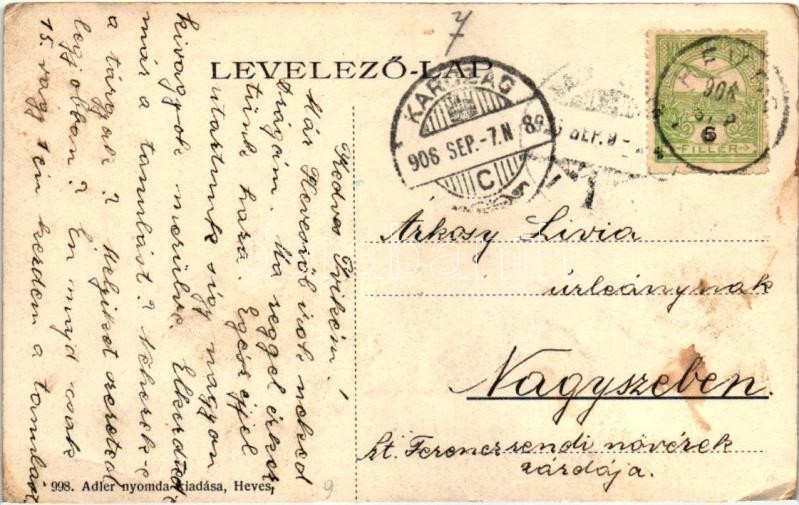 7
LEVELEZŐ-LAP
KARCZAG
906 SEP.-7.N 8
C
SEP.9
906
SEP
6
FILLÉR
Kedves Ivikém!
Már Hevesről irok neked
drágám. Ma reggel érkez-
tünk haza Egész éjjel
utaztunk s igy nagyon
kivagyok merülve. Elkezdted
már a tanulást? Nehezek-e
a tárgyak? Melyiket szereted
legjobban? Én majd csak
15. vagy én kezdem a tanulást
Árkosy Livia
úrleánynak
Nagyszeben.
Szt. Ferenczrendi nővérek
zárdája.
998. Adler nyomda kiadása, Heves.
9